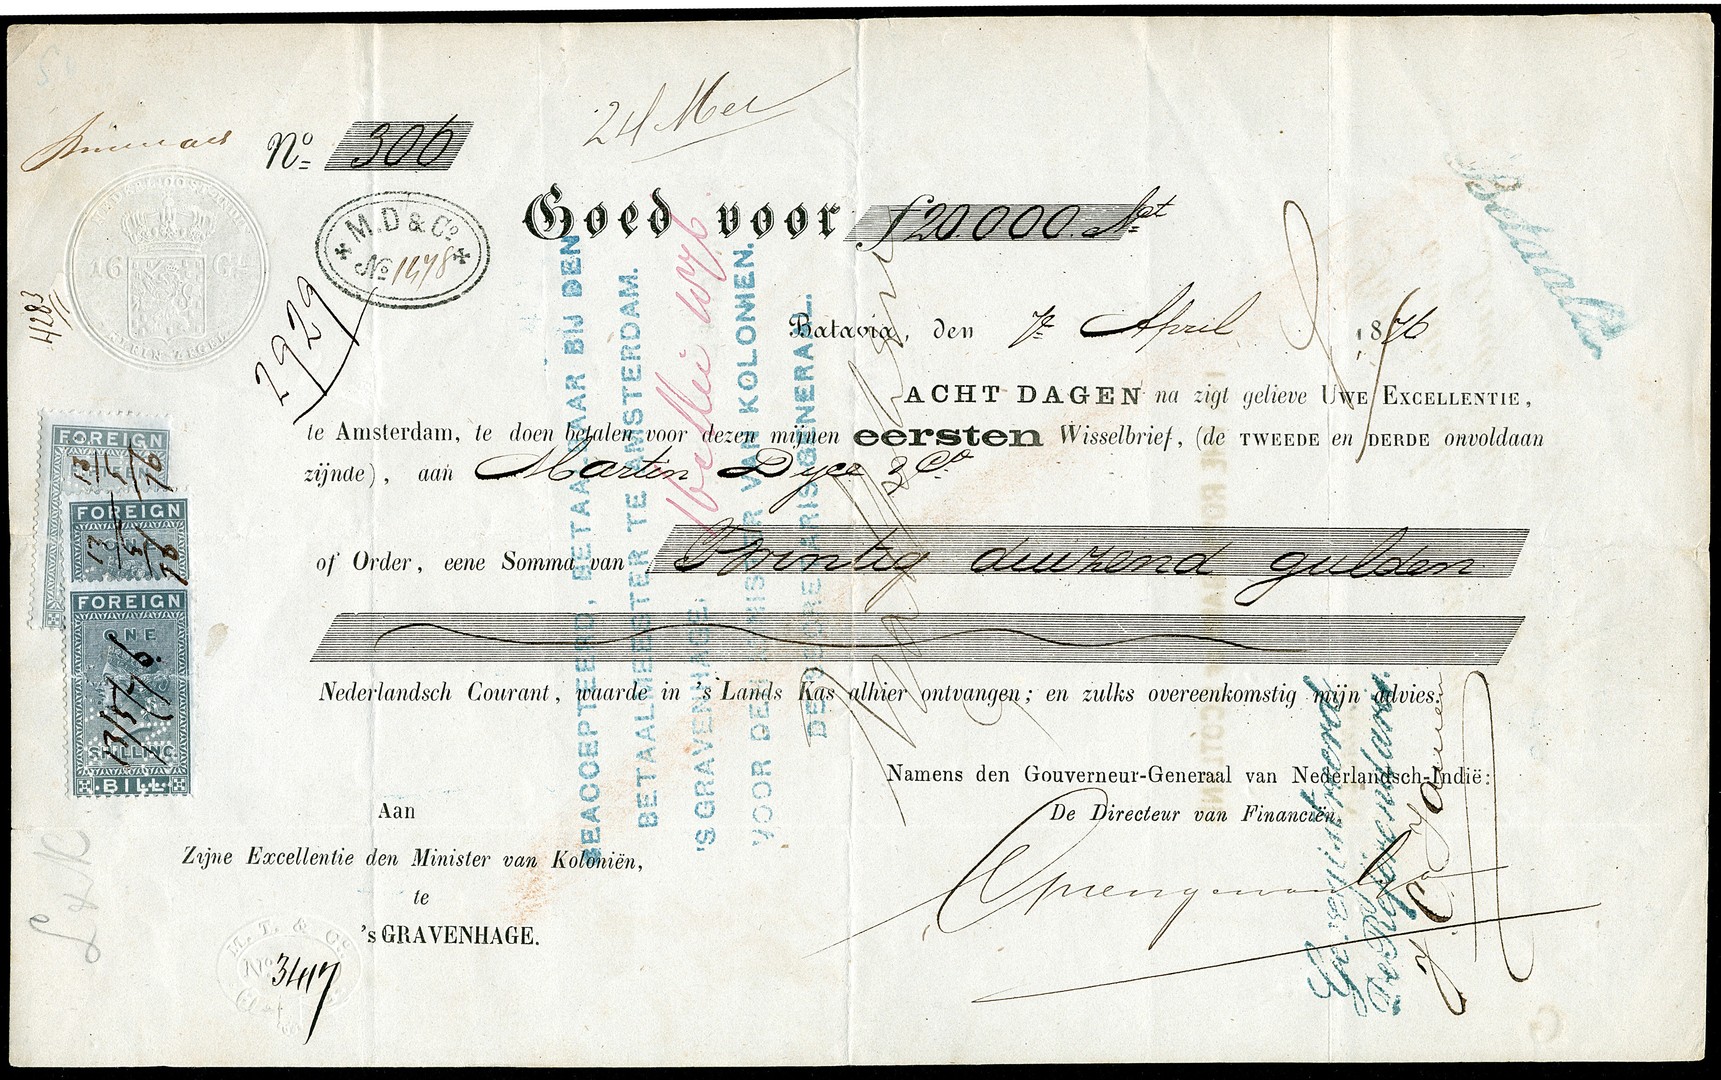 24 Mei
No. 306
M.D & Co.
No 1478
NEDERL. OOST INDIE
16 Gl.
KLEIN ZEGEL
4283
2929
Goed voor f 20.000. Nct
Betaalbaar
Batavia, den 7e April 1876
ACHT DAGEN na zigt gelieve UWE EXCELLENTIE,
te Amsterdam, te doen betalen voor dezen mijnen eersten Wisselbrief, (de TWEEDE en DERDE onvoldaan
zijnde), aan Martin Dyce & Co.
of Order, eene Somma van Twintig duizend gulden
Nederlandsch Courant, waarde in 's Lands Kas alhier ontvangen; en zulks overeenkomstig mijn advies.
Namens den Gouverneur-Generaal van Nederlandsch-Indië:
De Directeur van Financiën,
Aan
Zijne Excellentie den Minister van Koloniën,
te
's GRAVENHAGE.
GEACCEPTEERD, BETAALBAAR BIJ DEN
BETAALMEESTER TE AMSTERDAM.
'S GRAVENHAGE,
VOOR DEN MINISTER VAN KOLONIEN.
DE SECRETARIS GENERAAL.
Geregistreerd
De Rijpondare.
FOREIGN
13/5/76
FOREIGN
13/5/76
FOREIGN
ONE
13/5/76.
SHILLING
BILL
M. T. & Co.
No 3417